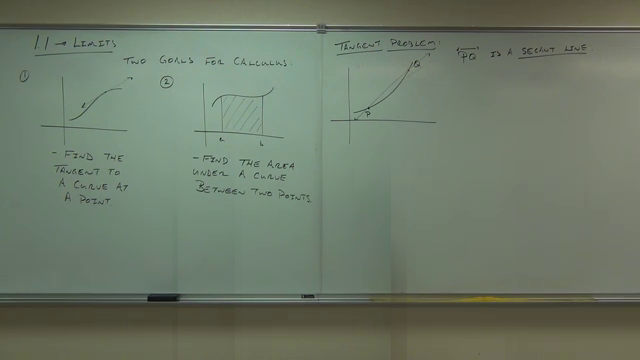 1.1 → LIMITS
TWO GOALS FOR CALCULUS:
①
- FIND THE
TANGENT TO
A CURVE AT
A POINT.
②
a b
- FIND THE AREA
UNDER A CURVE
BETWEEN TWO POINTS
TANGENT PROBLEM:
Q
P
PQ IS A SECANT LINE